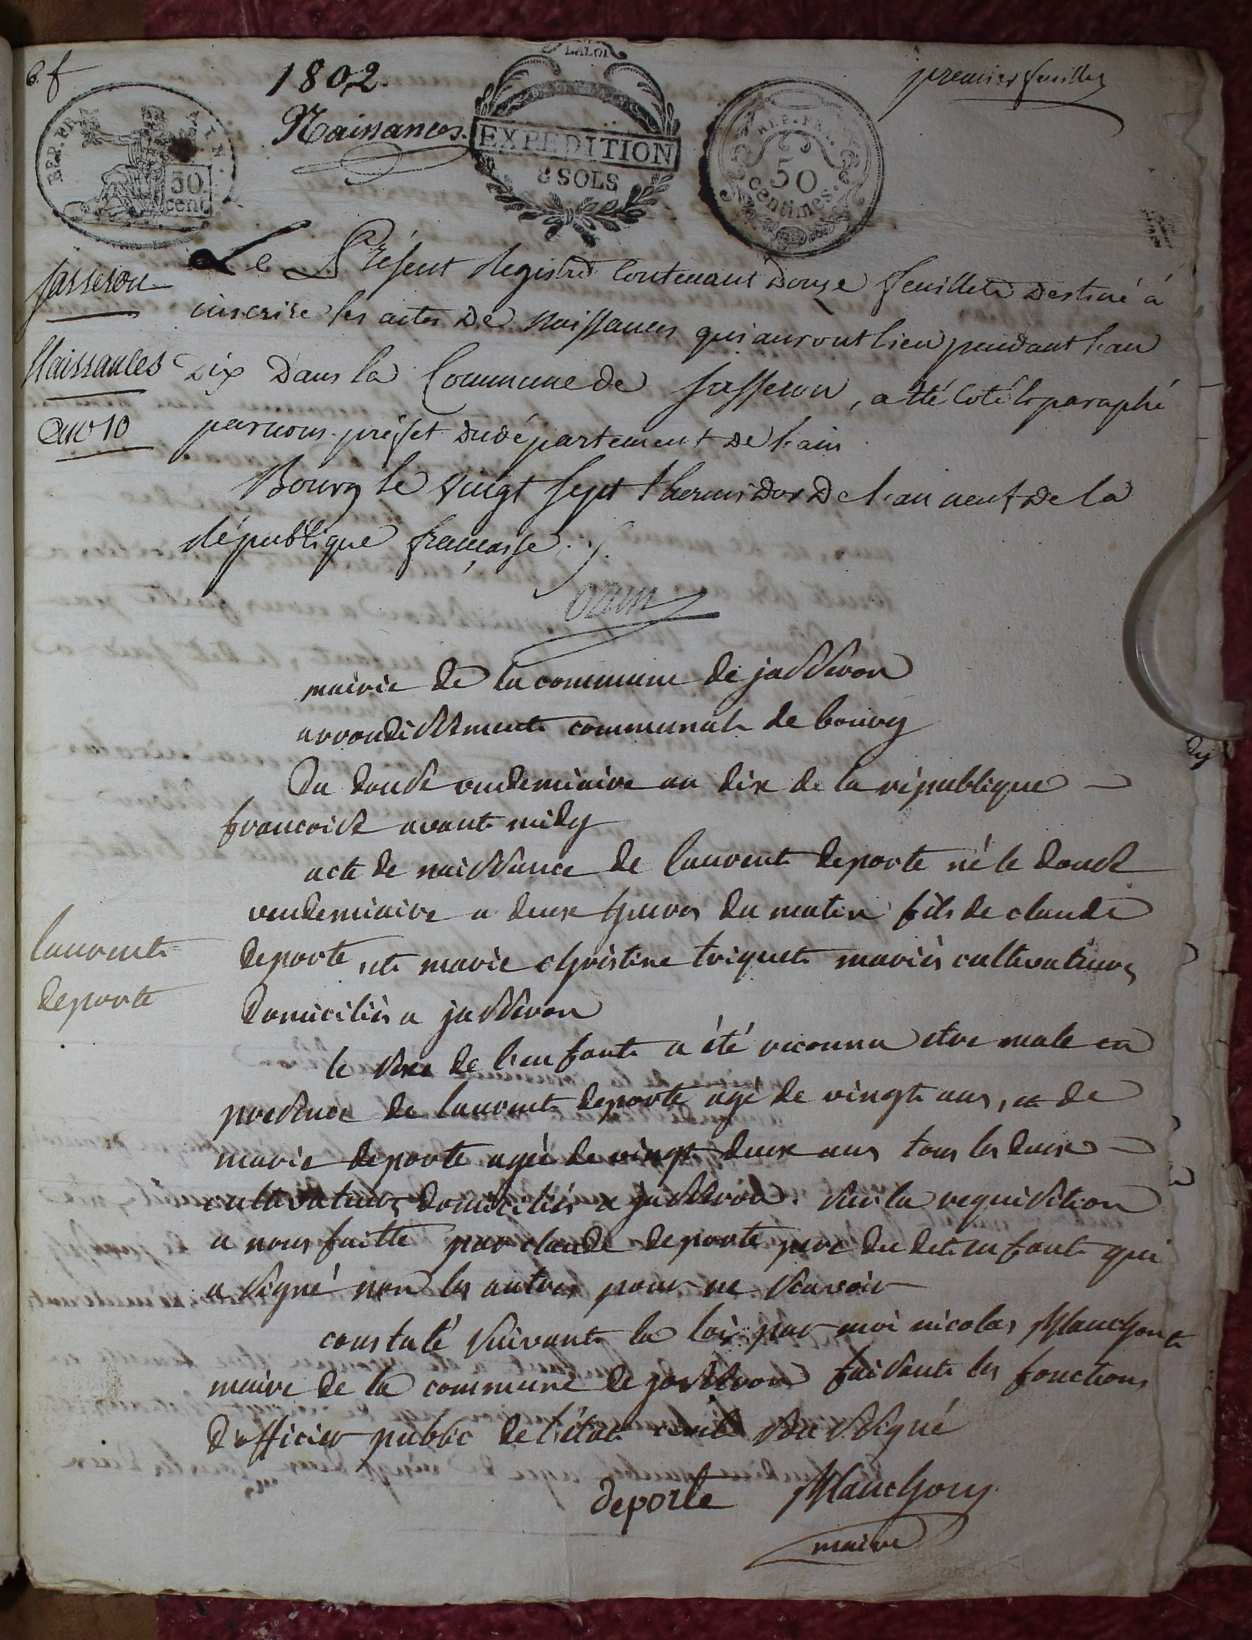 6. f
1802.
Naissances.
premier feuillet
LA LOI
EXPEDITION
8 SOLS
REP. FRA
30
cent
REP. FRA.
50
centimes.
Le Présent Registre Contenant Douze feuillets Destiné à
inscrire les actes De Naissances qui auront lieu pendant l'an
Dix Dans la Commune de Jasseron, a été Coté & paraphé
par nous préfet du département De l'ain
Bourg le Vingt Sept thermidor De l'an neuf De la
république française ./.
Jasseron
Naissances
an 10
mairie de la commune de jasseron
arrondissement communal de bourg
Du douse vendemiaire an dix de la république
francoise avant midy
acte de naissance de laurent deporte né le douse
vendemiaire a deux heures du matin fils de claude
deporte, et marie christine triquet mariés cultivateurs
domiciliés a jasseron
laurent
deporte
le sexe de l'enfant a été reconnu etre male en
presence de laurent deporte agé de vingt ans, et de
marie deporte agée de vingt deux ans tous les deux
cultivateurs domiciliés a jasseron. sur la requisition
a nous faitte par claude deporte pere du dit enfant qui
a signé non les autres pour ne scavoir
constaté suivant la loi par moi nicolas Mauchont
maire de la commune de jasseron faisant les fonctions
d'officier public de l'état civil sousigné
deporte Mauchony
maire